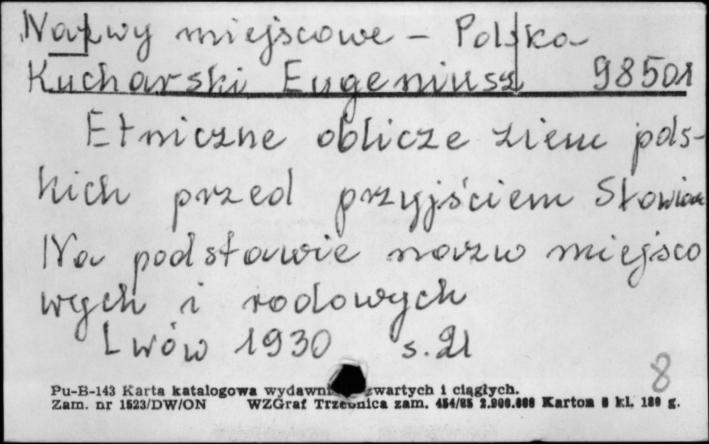 Nazwy miejscowe - Polska
Kucharski Eugeniusz 98501
Etniczne oblicze ziem pols-
kich przed przyjściem Słowian
Na podstawie nazw miejsco
wych i rodowych
Lwów 1930 s. 21
8
Pu-B-143 Karta katalogowa wydawnictw zwartych i ciągłych.
Zam. nr 1523/DW/ON WZGraf Trzebnica zam. 454/85 2.900.000 Karton 8 kl. 180 g.